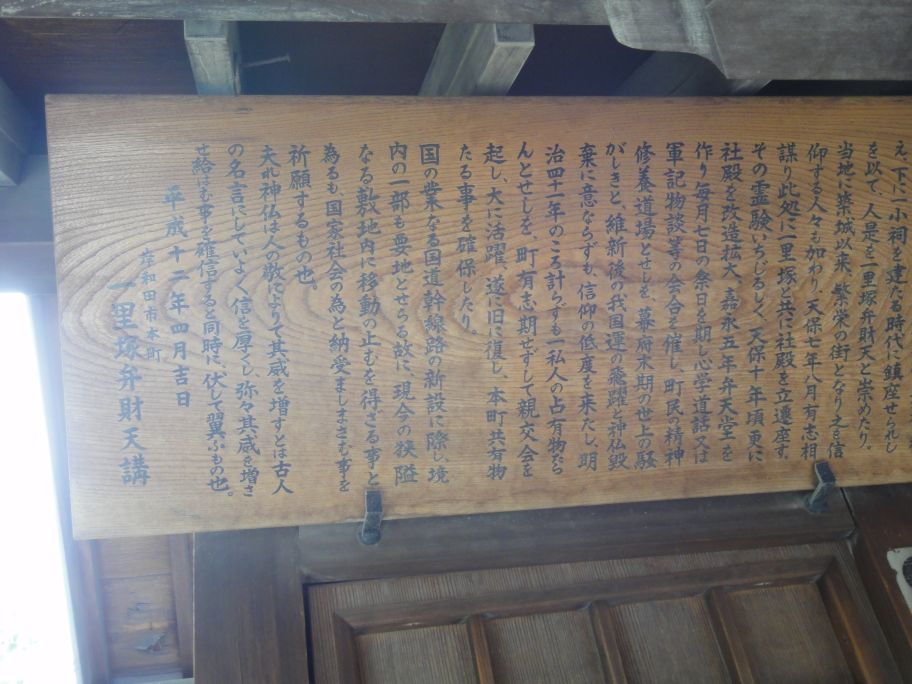 え、下に一小祠を建たる時代に鎮座せられし
を以て、人是を一里塚弁財天と崇めたり。
当地に築城以来、繁栄の街となり之を信
仰する人々も加わり、天保七年八月有志相
謀り此処に一里塚と共に社殿を立遷座す。
その霊験いちじるしく、天保十年頃更に
社殿を改造拡大、嘉永五年弁天堂を
作り毎月七日の祭日を期し心学道話又は
軍記物談等の会合を催し、町民の精神
修養道場とせしを、幕府末期の世上の騒
がしきと、維新後の我国運の飛躍と神仏毀
棄に意ならずも、信仰の低度を来たし、明
治四十一年のころ計らずも一私人の占有物たら
んとせしを、町有志期せずして親交会を
起し、大に活躍、遂に旧に復し、本町共有物
たる事を確保したり。
国の業なる国道幹線路の新設に際し、境
内の一部も要地とせらる故に、現今の狭隘
なる敷地内に移動の止むを得ざる事と
為るも、国家社会の為と納受ましまさむ事を
祈願するもの也。
夫れ神仏は人の敬によりて其威を増すとは古人
の名言にしていよく信を厚くし、弥々其威を増さ
せ給はむ事を確信すると同時に、伏して翼ふもの也。
平成十二年四月吉日
岸和田市本町
一里塚弁財天講